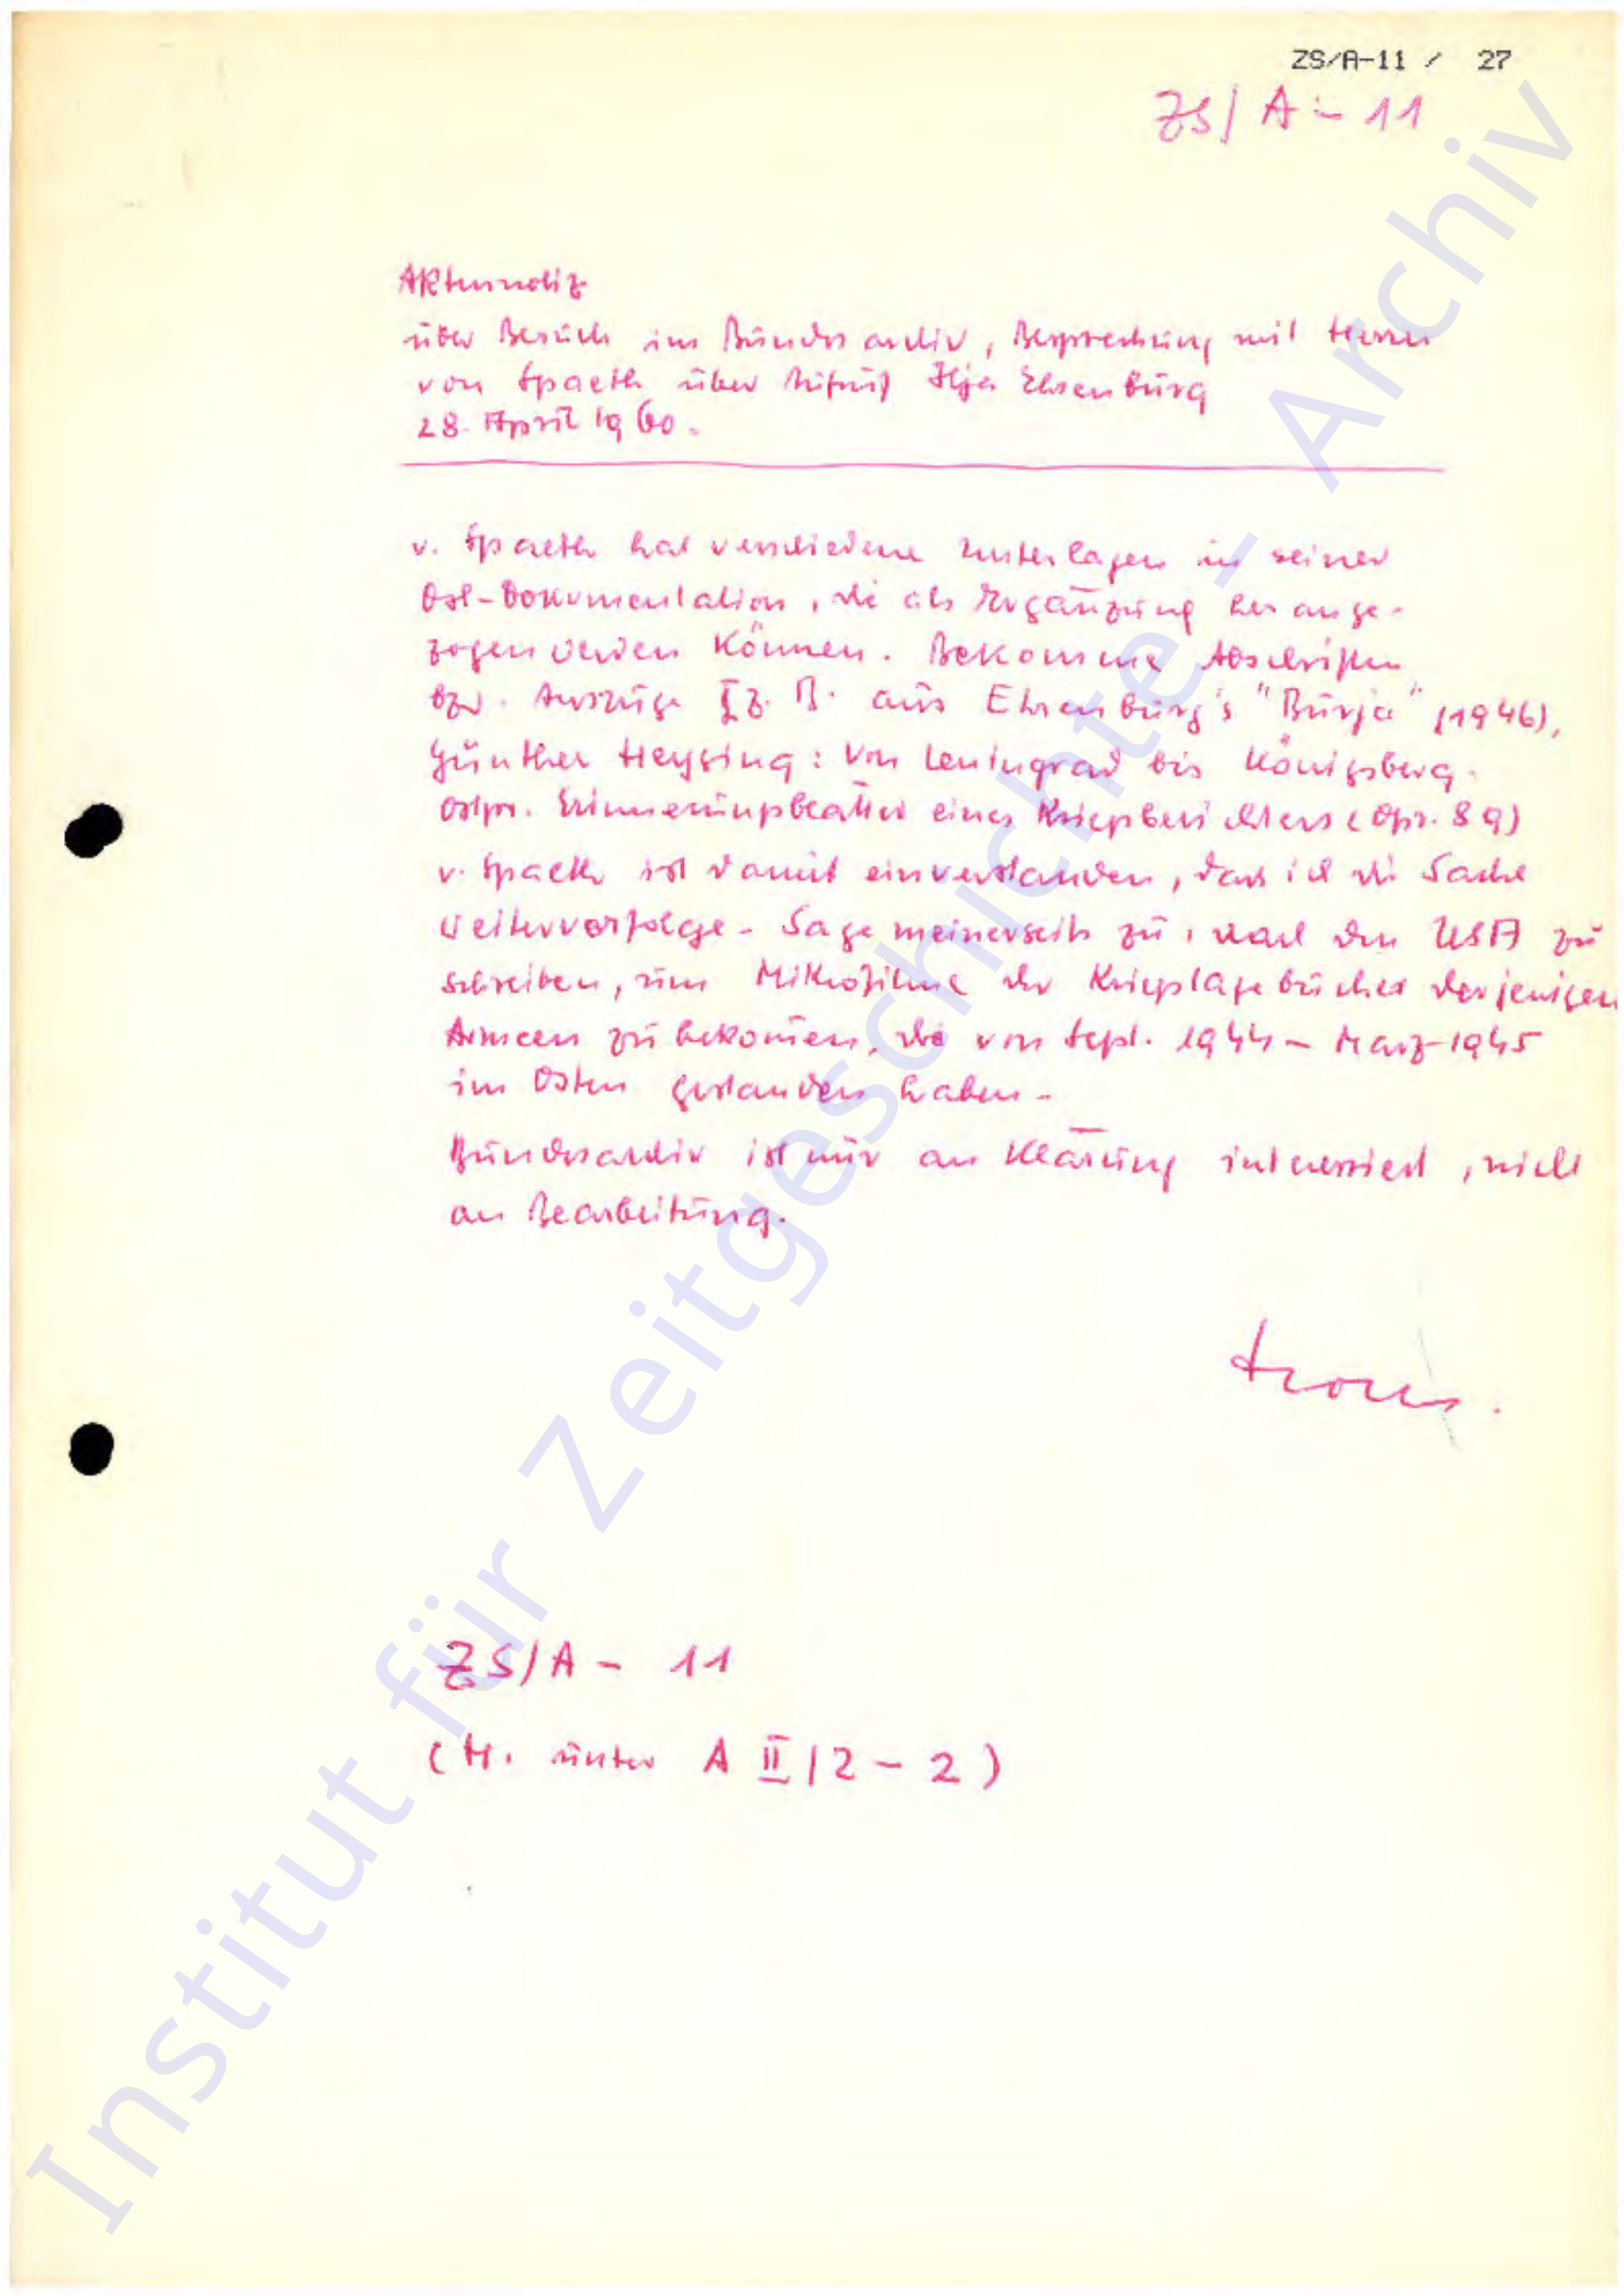 ZS/A-11 / 27
ZS/A-11
Aktennotiz
über Besuch im Bundesarchiv, Besprechung mit Herrn
von Spaeth über Aufruf Ilja Ehrenburg
28. April 1960.
v. Spaeth hat verschiedene Unterlagen in seiner
Ost-Dokumentation, die als Ergänzung herange-
zogen werden können. Bekomme Abschriften
bzw. Auszüge z.B. aus Ehrenburg's "Burja" (1946),
Günther Heysing: Von Leningrad bis Königsberg.
Ostpr. Erinnerungsblätter eines Kriegsberichters (Opr. 89)
v. Spaeth ist damit einverstanden, dass ich die Sache
weiterverfolge - Sage meinerseits zu, nach den USA zu
schreiben, um Mikrofilme der Kriegstagebücher derjenigen
Armeen zu bekomen, die von Sept. 1944 - März 1945
im Osten gestanden haben -
Bundesarchiv ist nur an Klärung interessiert, nicht
an Bearbeitung.
ZS/A - 11
(H. unter A II/2 - 2)
Institut für Zeitgeschichte - Archiv